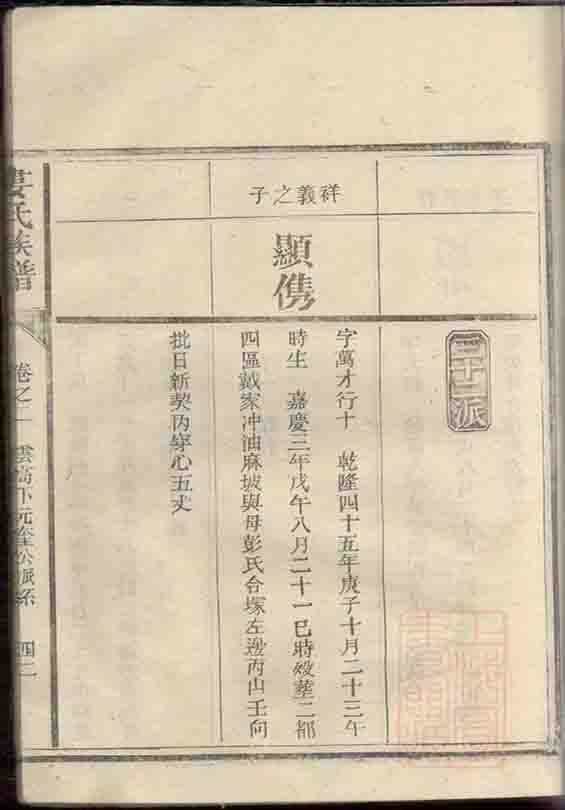 三十二派
祥義之子
顯儁
字萬才行十　乾隆四十五年庚子十月二十三午
時生　嘉慶三年戊午八月二十一巳時歿塟二都
四區戴家冲油麻坡與母彭氏合塚左邊丙山壬向
批日新契內穿心五丈
婁氏族譜
卷之一　雲高下元奎公派系　四二